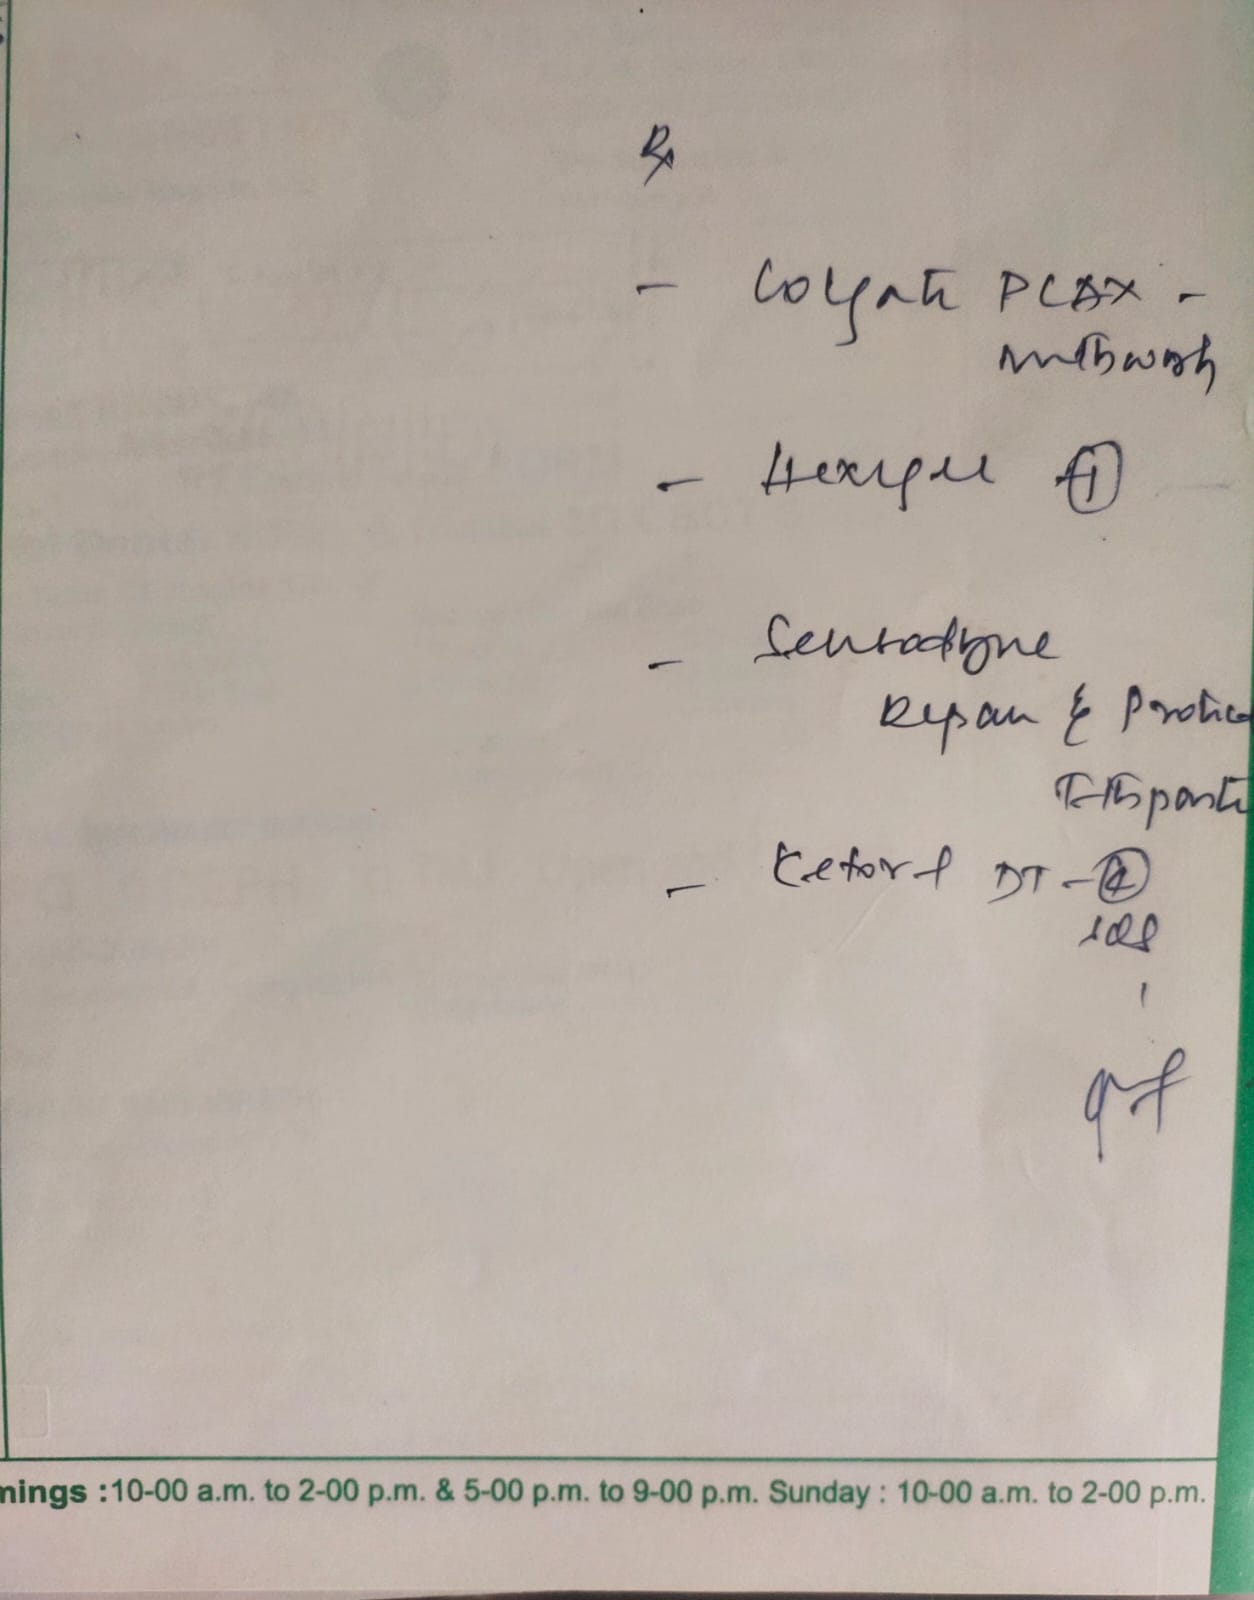 Rx
- Colgate PLAX -
mthwash
- Hexigel 1
- Sensodyne
Repair & Protec
T-thpaste
- Ketorol DT -
SOS
mings : 10-00 a.m. to 2-00 p.m. & 5-00 p.m. to 9-00 p.m. Sunday : 10-00 a.m. to 2-00 p.m.